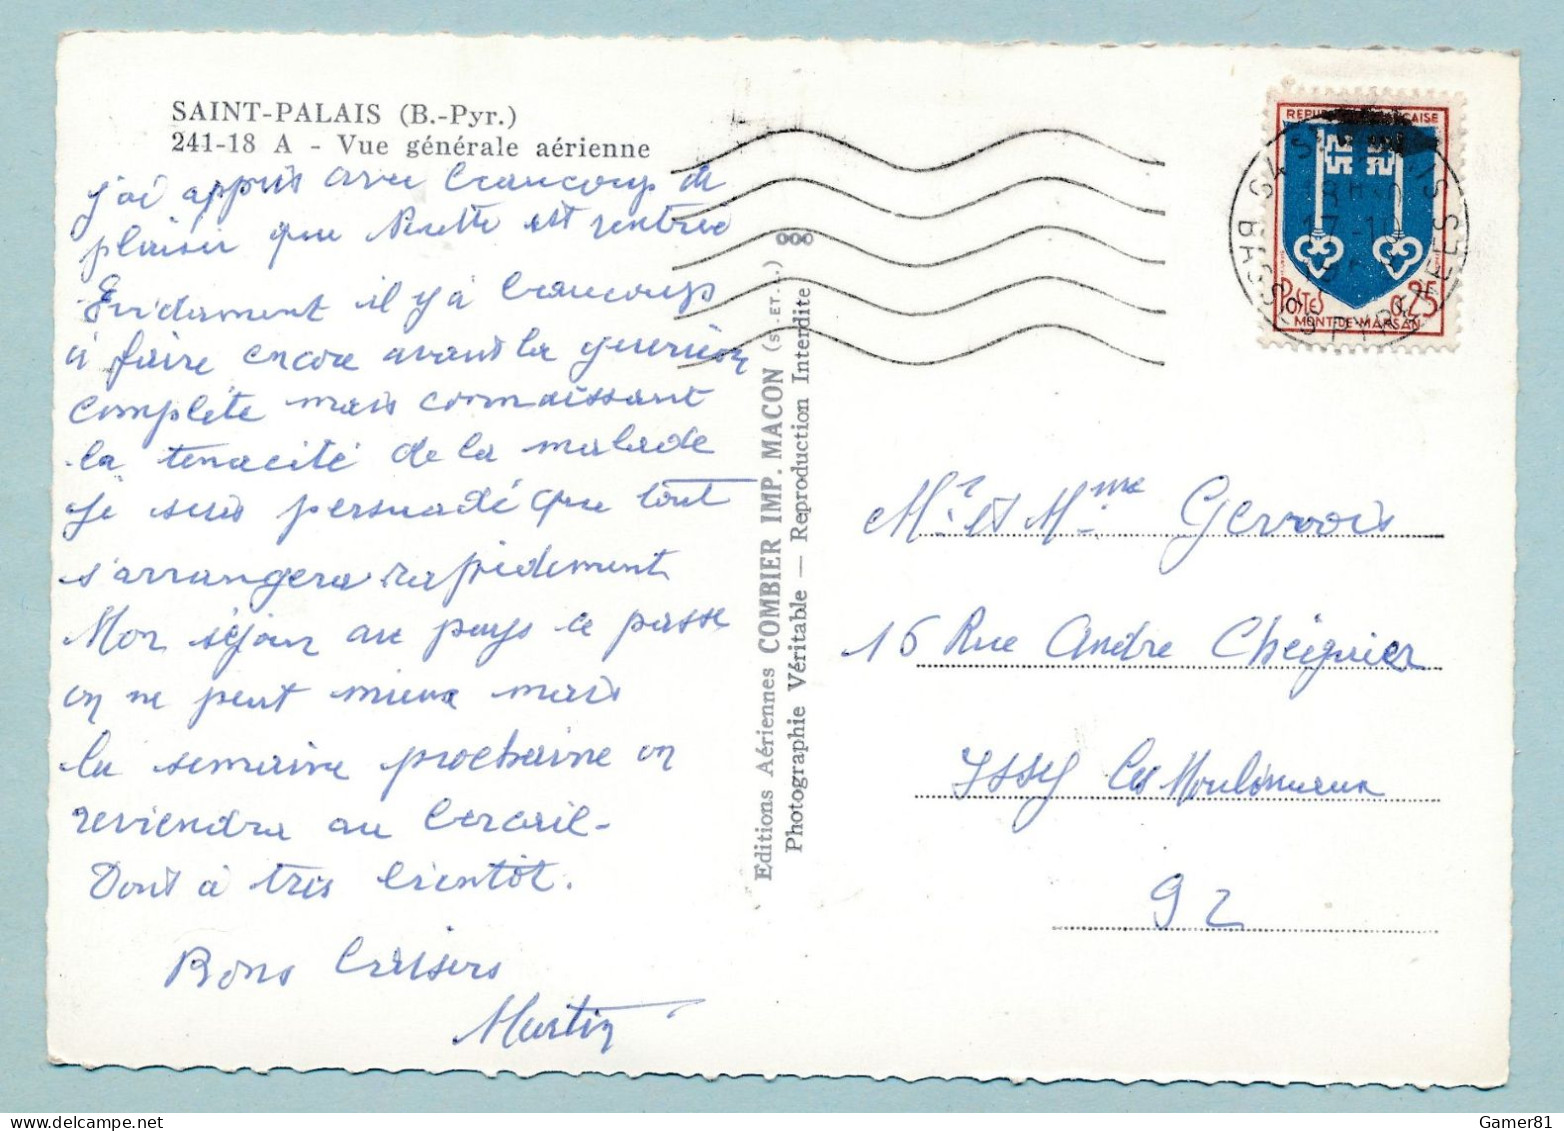 SAINT-PALAIS (B.-Pyr.)
241-18 A - Vue générale aérienne
j'ai appris avec beaucoup de
plaisir que est rentrée
Evidemment il y a beaucoup
à faire encore avant la guérison
complète mais connaissant
la tenacité de la malade
je suis persuadé que tout
s'arrangera rapidement
Mon séjour au pays ce passe
on ne peut mieux mais
la semaine prochaine on
reviendra au bercail -
Donc à très bientôt.
Bons baisers
Martin
Editions Aériennes COMBIER IMP. MACON (S.-ET-L.)
Photographie Véritable — Reproduction Interdite
REPUBLIQUE FRANÇAISE
POSTES 0,25
MONT-DE-MARSAN
17-10
BASSES PYRENEES
Mr et Mme Gervois
16 Rue Andre Chéignier
ISSY les Moulineaux
92
Gamer81